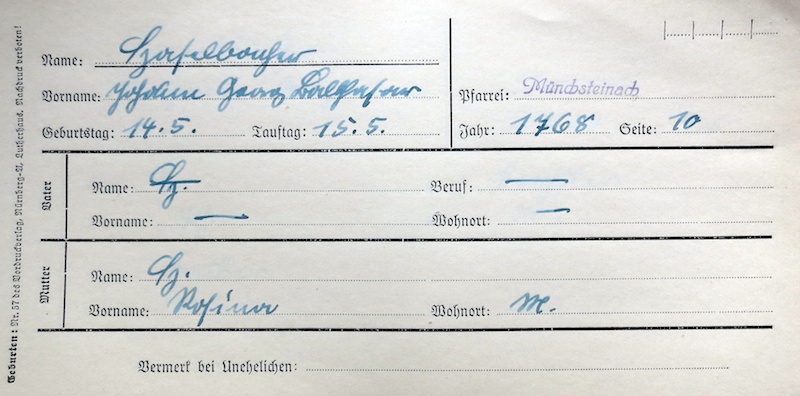 Geburten: Nr. 57 des Vordruckverlag, Nürnberg-A, Lutherhaus. Nachdruck verboten!
Name: Haselbacher
Vorname: Johann Georg Balthasar
Pfarrei: Münchsteinach
Geburtstag: 14.5. Tauftag: 15.5. Jahr: 1768 Seite: 10
Vater
Name: H. Beruf: —
Vorname: — Wohnort: —
Mutter
Name: H.
Vorname: Rosina Wohnort: M.
Vermerk bei Unehelichen: